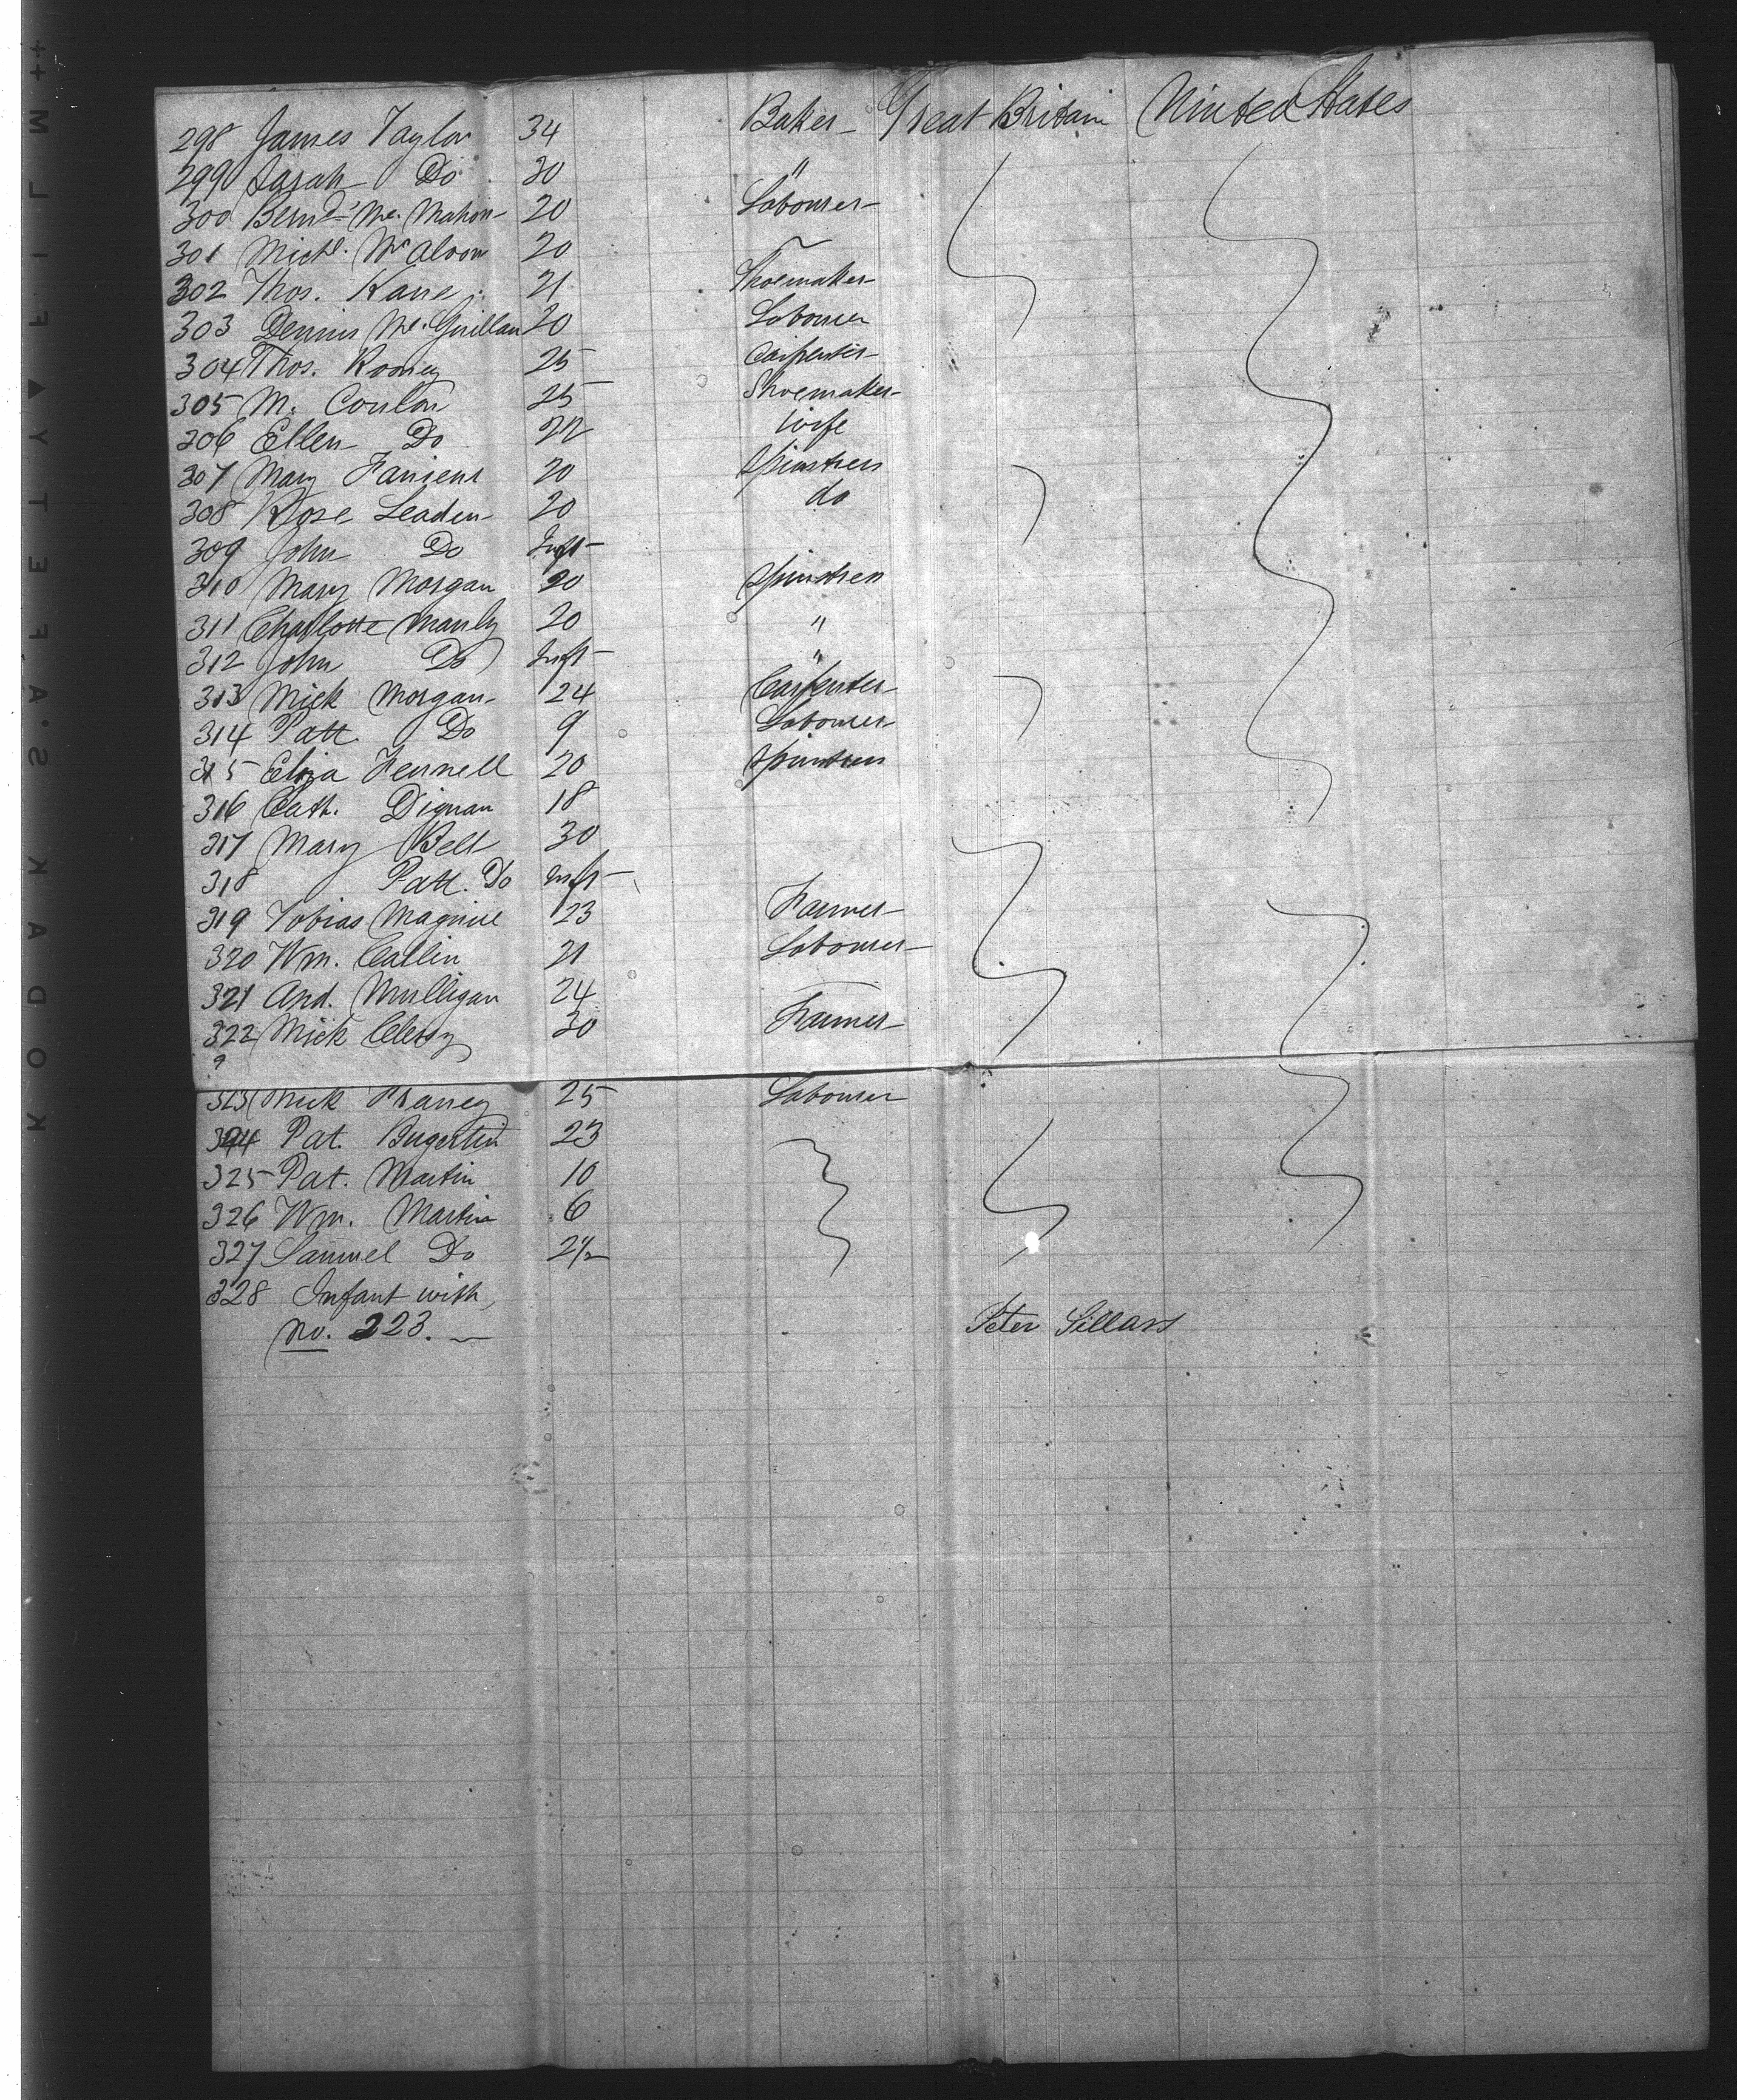 298 James Taylor 34 Baker - Great Britain United States
299 Sarah Do 30 "
300 Bernd. Mc. Mahon 20 Labourer
301 Michl. McAloon 20
302 Thos. Kane 21 Shoemaker
303 Dennis Mc. Guillan 20 Labourer
304 Thos. Rooney 25 Carpenter
305 M. Conlan 25 Shoemaker
306 Ellen Do 22 wife
307 Mary 20 Spinstress
308 Rose Leaden 20 do
309 John Do Inft
310 Mary Morgan 20 Spinstress
311 Charlotte Manly 20 "
312 John Do Inft "
313 Mick Morgan 24 Carpenter
314 Patt Do 9 Labourer
315 Eliza Fennell 20 Spinstress
316 Cath. Dignan 18
317 Mary Bell 30
318 Patt. Do Inft
319 Tobias Maguire 23 Farmer
320 Wm. Catlin 21 Labourer
321 And. Mulligan 24
322 Mick Clersy 30 Farmer
323 Mick 25 Labourer
324 Pat. 23
325 Pat. Martin 10
326 Wm. Martin 6
327 Samuel Do 2 1/2
328 Infant with
no. 223.
Peter Sillars
KODAK SAFETY FILM